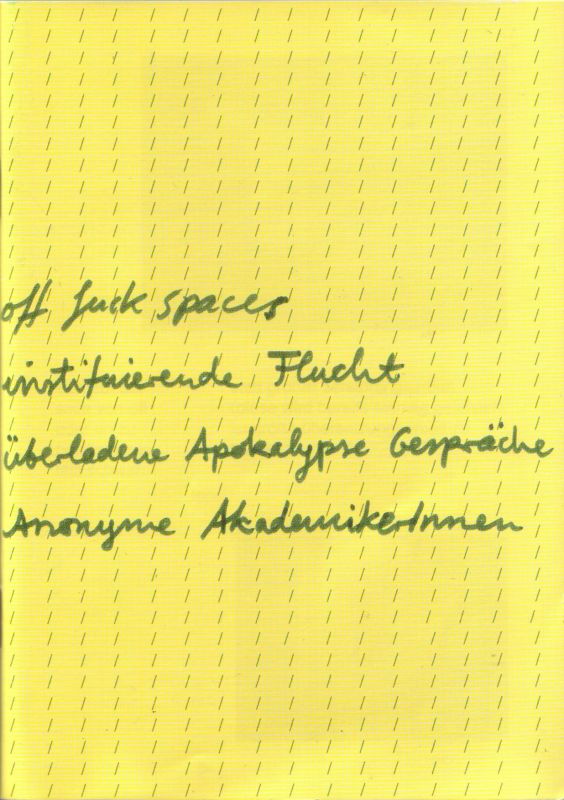 off fuck spaces
instituierende Flucht
überladene Apokalypse Gespräche
Anonyme AkademikerInnen